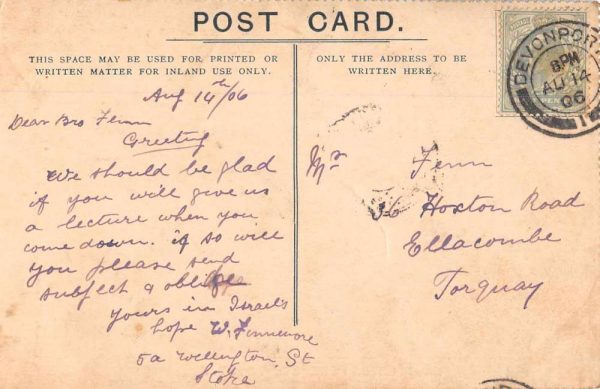 POST CARD.
THIS SPACE MAY BE USED FOR PRINTED OR
WRITTEN MATTER FOR INLAND USE ONLY.
ONLY THE ADDRESS TO BE
WRITTEN HERE.
DEVONPORT
8PM
AU 14
06
Aug 14th/06
Dear Bro Fenn
Greeting
We should be glad
if you will give us
a lecture when you
come down. if so will
you please send
subject & oblige
yours in Israel's
hope W. Finnemore
5a Wellington St
Stoke
Mr Fenn
36 Hoxton Road
Ellacombe
Torquay